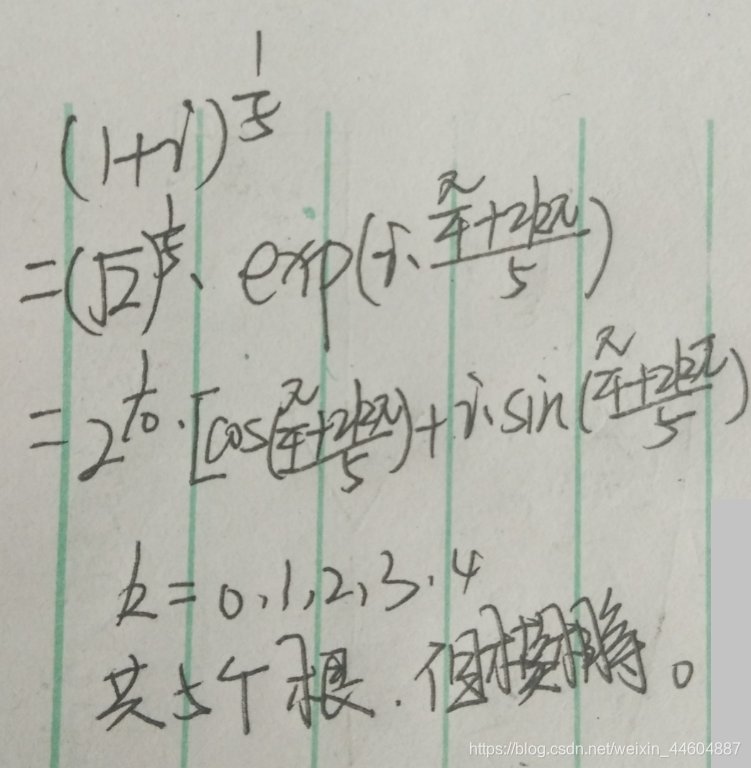 (1+i)^{\frac{1}{5}}
=(\sqrt{2})^{\frac{1}{5}}·exp(i·\frac{\frac{π}{4}+2kπ}{5})
=2^{\frac{1}{10}}·[cos(\frac{\frac{π}{4}+2kπ}{5})+i·sin(\frac{\frac{π}{4}+2kπ}{5})
k=0,1,2,3,4
共5个根.但模相等。
https://blog.csdn.net/weixin_44604887